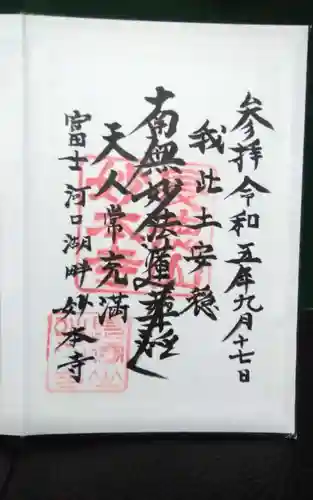 参拝 令和五年九月十七日
我此土安穏
南無妙法蓮華経
天人常充満
富士河口湖畔 妙本寺